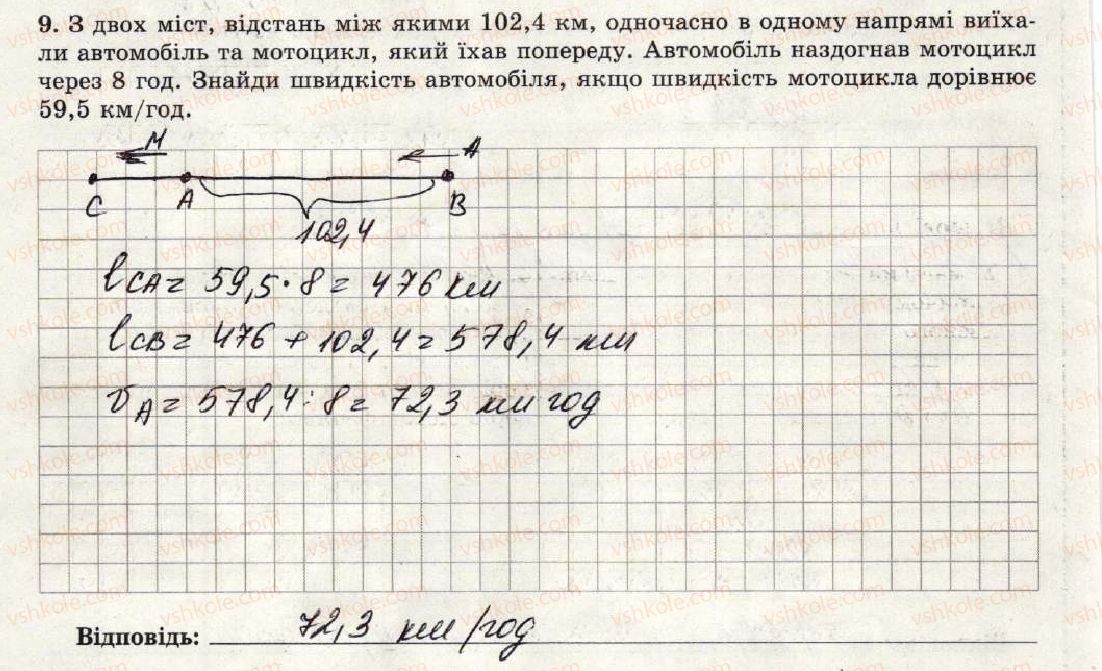 9. З двох міст, відстань між якими 102,4 км, одночасно в одному напрямі виїха-
ли автомобіль та мотоцикл, який їхав попереду. Автомобіль наздогнав мотоцикл
через 8 год. Знайди швидкість автомобіля, якщо швидкість мотоцикла дорівнює
59,5 км/год.
М А
С А В
102,4
lCA = 59,5 · 8 = 476 км
lCB = 476 + 102,4 = 578,4 км
υA = 578,4 : 8 = 72,3 км год
Відповідь: 72,3 км/год